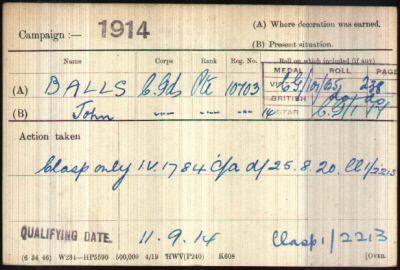 Campaign :— 1914
(A) Where decoration was earned.
(B) Present situation.
Name Corps Rank Reg. No. Roll on which included (if any)
MEDAL ROLL PAGE
(A) BALLS C. Gds Pte 10703
VICTORY C.G./101/B5 238
(B) John " " "
BRITISH do do
STAR C.G/1
Action taken
Clasp only IV. 1784 C/a d/ 25.8.20. Cl 1/2213
QUALIFYING DATE. 11.9.14 Clasp 1/2213
(6 34 46) W234—HP5590 500,000 4/19 HWV(P240) K608 [OVER.